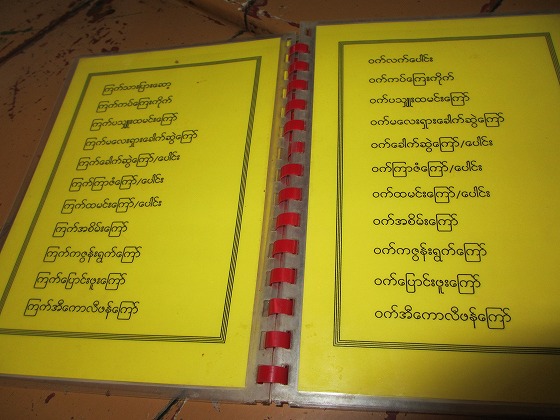 ကြက်သားပြားဆော့
ကြက်ကပ်ကြေးကိုက်
ကြက်ပသျှူးထမင်းကြော်
ကြက်မလေးရှားခေါက်ဆွဲကြော်
ကြက်ခေါက်ဆွဲကြော်/ပေါင်း
ကြက်ကြာဇံကြော်/ပေါင်း
ကြက်ထမင်းကြော်/ပေါင်း
ကြက်အစိမ်းကြော်
ကြက်ကဇွန်းရွက်ကြော်
ကြက်ပြောင်းဖူးကြော်
ကြက်အီကောလီဖန်ကြော်
ဝက်လက်ပေါင်း
ဝက်ကပ်ကြေးကိုက်
ဝက်ပသျှူးထမင်းကြော်
ဝက်မလေးရှားခေါက်ဆွဲကြော်
ဝက်ခေါက်ဆွဲကြော်/ပေါင်း
ဝက်ကြာဇံကြော်/ပေါင်း
ဝက်ထမင်းကြော်/ပေါင်း
ဝက်အစိမ်းကြော်
ဝက်ကဇွန်းရွက်ကြော်
ဝက်ပြောင်းဖူးကြော်
ဝက်အီကောလီဖန်ကြော်